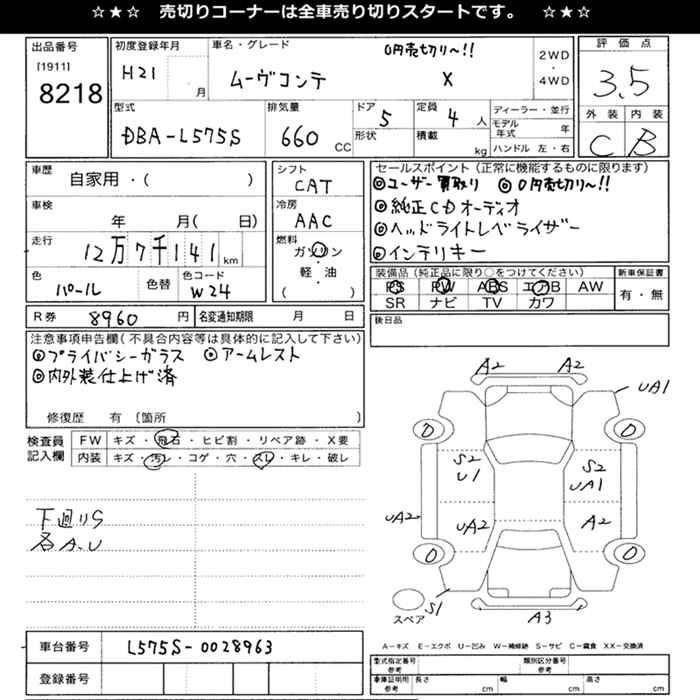 ☆★☆ 売切りコーナーは全車売り切りスタートです。 ☆★☆
出品番号
[1911]
8218
初度登録年月
H21 月
車名・グレード
0円売切リ〜!!
ムーヴコンテ X
2WD
・
4WD
評価点
3.5
外装 内装
C B
型式
DBA-L575S
排気量
660 CC
ドア
5
形状
定員
4 人
積載
kg
ディーラー・並行
モデル年式 年
ハンドル 左・右
車歴
自家用・( )
車検
年 月( 日)
走行
12万7千141 km
色
パール
色替
色コード
W24
シフト
CAT
冷房
AAC
燃料
ガソリン
・
軽・油
( )
セールスポイント(正常に機能するものに限ります)
◎ユーザー買取り ◎0円売切リ〜!!
◎純正CDオーディオ
◎ヘッドライトレベライザー
◎インテリキー
装備品(純正品に限り○をつけてください)
PS PW ABS エアB AW
SR ナビ TV カワ
新車保証書
有・無
後日品
R券 8960 円
名変通知期限 月 日
注意事項申告欄(不具合内容等は具体的に記入して下さい)
◎プライバシーガラス ◎アームレスト
◎内外装仕上げ済
修復歴 有 (箇所 )
検査員
記入欄
FW キズ・飛石・ヒビ割・リペア跡・X要
内装 キズ・汚レ・コゲ・穴・スレ・キレ・破レ
下廻りS
各A.U
A2 A2
UA1
S2
U1
S2
UA1
UA2
UA2
A2
S1
A3
スペア
車台番号 L575S-0028963
登録番号
A-キズ E-エクボ U-凹み W-補修跡 S-サビ C-腐食 XX-交換済
型式指定番号
参考
類別区分番号
参考
車庫証明用
参考
長さ cm
幅 cm
高さ cm